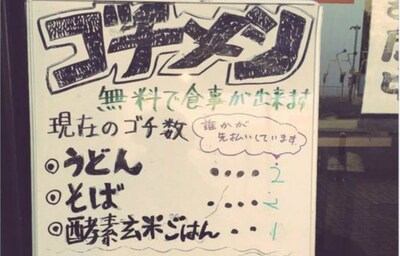 ゴチメン
無料で食事が出来ます
現在のゴチ数
誰かが
先払いしています
◎うどん ‥‥ 2
◎そば ‥‥ 2
◎酵素玄米ごはん ‥ 1